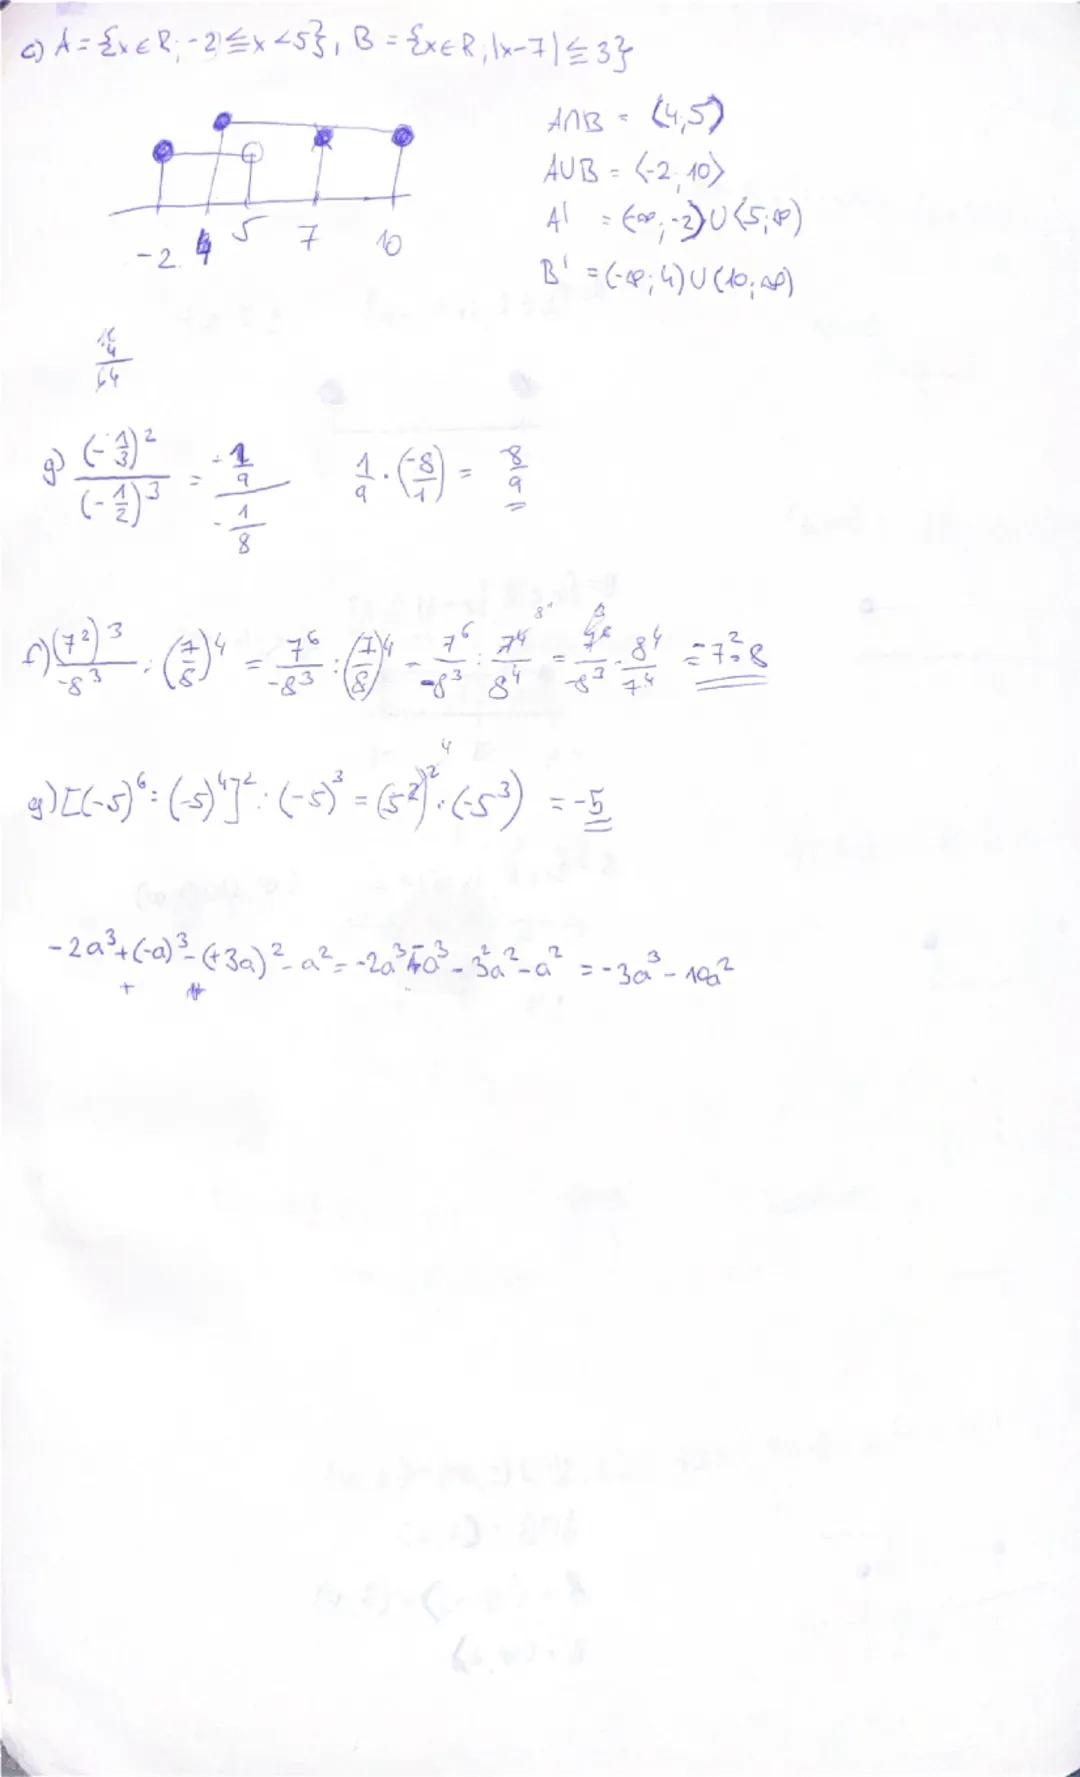 c) A = {x ∈ R; -2 ≦ x < 5}, B = {x ∈ R; |x-7| ≦ 3}
A∩B = ⟨4,5)
A∪B = ⟨-2, 10⟩
A' = (-∞; -2) ∪ ⟨5; ∞)
B' = (-∞; 4) ∪ (10; ∞)
-2 4 5 7 10
64
g) (-1/3)² / (-1/2)³ = -1/9 / -1/8   1/9 · (-8/1) = 8/9
f) (7²)³ / -8³ : (7/8)⁴ = 7⁶ / -8³ : (7/8)⁴ = 7⁶ / -8³ : 7⁴ / 8⁴ = 7⁶ / -8³ · 8⁴ / 7⁴ = 7² · 8
g) [(-5)⁶ : (-5)⁴]² : (-5)³ = (5²)² : (-5³) = -5
-2a³ + (-a)³ - (+3a)² - a² = -2a³ - a³ - 3²a² - a² = -3a³ - 10a²